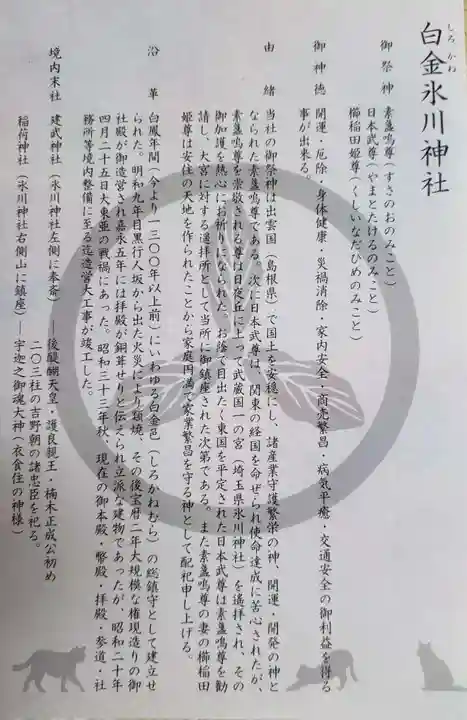 しろ かわ
白金氷川神社
御祭神 素盞嗚尊(すさのおのみこと)
日本武尊(やまとたけるのみこと)
櫛稲田姫尊(くしいなだひめのみこと)
御神徳 開運・厄除・身体健康・災禍消除・家内安全・商売繁昌・病気平癒・交通安全の御利益を得る
事が出来る。
由緒 当社の御祭神は出雲国(島根県)で国土を安穏にし、諸産業守護繁栄の神、開運・開発の神と
なられた素盞嗚尊である。次に日本武尊は、関東の経国を命ぜられ使命達成に苦心されたが、
素盞嗚尊を崇敬される尊は日夜丘に上って武蔵国一の宮(埼玉県氷川神社)を遙拝され、その
御加護を熱心にお祈りになられた。お蔭で目出たく東国を平定された日本武尊は素盞嗚尊を勧
請し、大宮に対する遙拝所として当所に御鎮座された次第である。また素盞嗚尊の妻の櫛稲田
姫尊は安住の天地を作られたことから家庭円満で家業繁昌を守る神として配祀申し上げる。
沿革 白鳳年間(今より一三〇〇年以上前)にいわゆる白金邑(しろかねむら)の総鎮守として建立せ
られた。明和九年目黒行人坂から出た火災により類焼、その後宝暦二年大規模な権現造りの御
社殿が御造営され嘉永五年には拝殿が銅葺せりと伝えられ立派な建物であったが、昭和二十年
四月二十五日大東亜の戦禍にあった。昭和三十三年秋、現在の御本殿・幣殿・拝殿・参道・社
務所等境内整備に至る迄造営大工事が竣工した。
境内末社 建武神社(氷川神社左側に奉斎)―後醍醐天皇・護良親王・楠木正成公初め
二〇三社の吉野朝の諸忠臣を祀る。
稲荷神社(氷川神社右側山に鎮座)―宇迦之御魂大神(衣食住の神様)